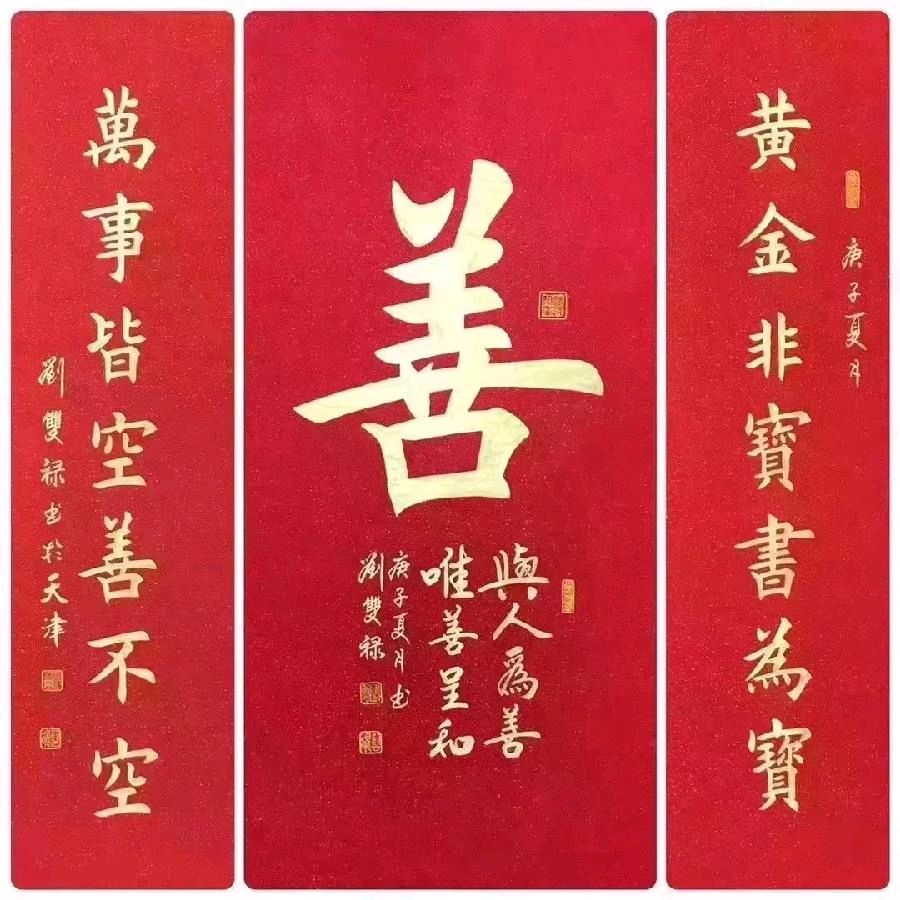 黄金非寶書為寶
庚子夏月
善
與人爲善
唯善呈和
庚子夏月书
劉雙禄
萬事皆空善不空
劉雙禄书於天津